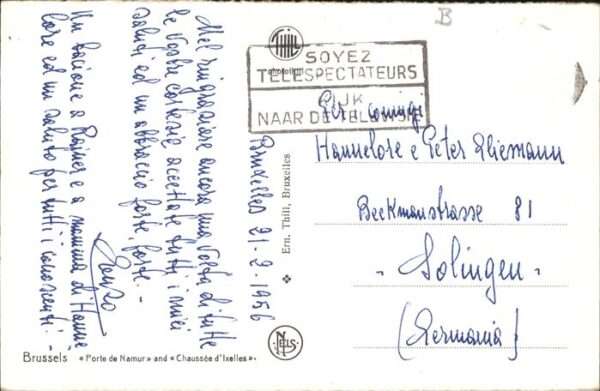 Bruxelles 21-2-1956
Nel ringraziare ancora una volta di tutte
le Vostre cortesie accettate tutti i miei
saluti ed un abbraccio forte, forte. -
Enzo
Un bacione a Rainer e a mamma di Hanne
lore ed un saluto per tutti i conoscenti. -
B
Thill
SOYEZ
TELESPECTATEURS
KIJK
NAAR DE TELEVISIE
Hannelore e Peter Kliemann
Beckmanstrasse 81
- Solingen -
(Germania)
Ern. Thill, Bruxelles
NELS
Brussels « Porte de Namur » and « Chaussée d'Ixelles ».